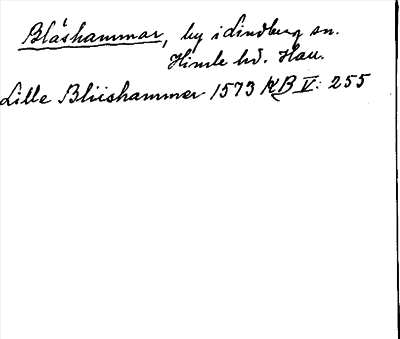 Blåshammar, by i Lindberg sn.
Himle hd. Hall.
Lille Bliishammer 1573 NRB V: 255